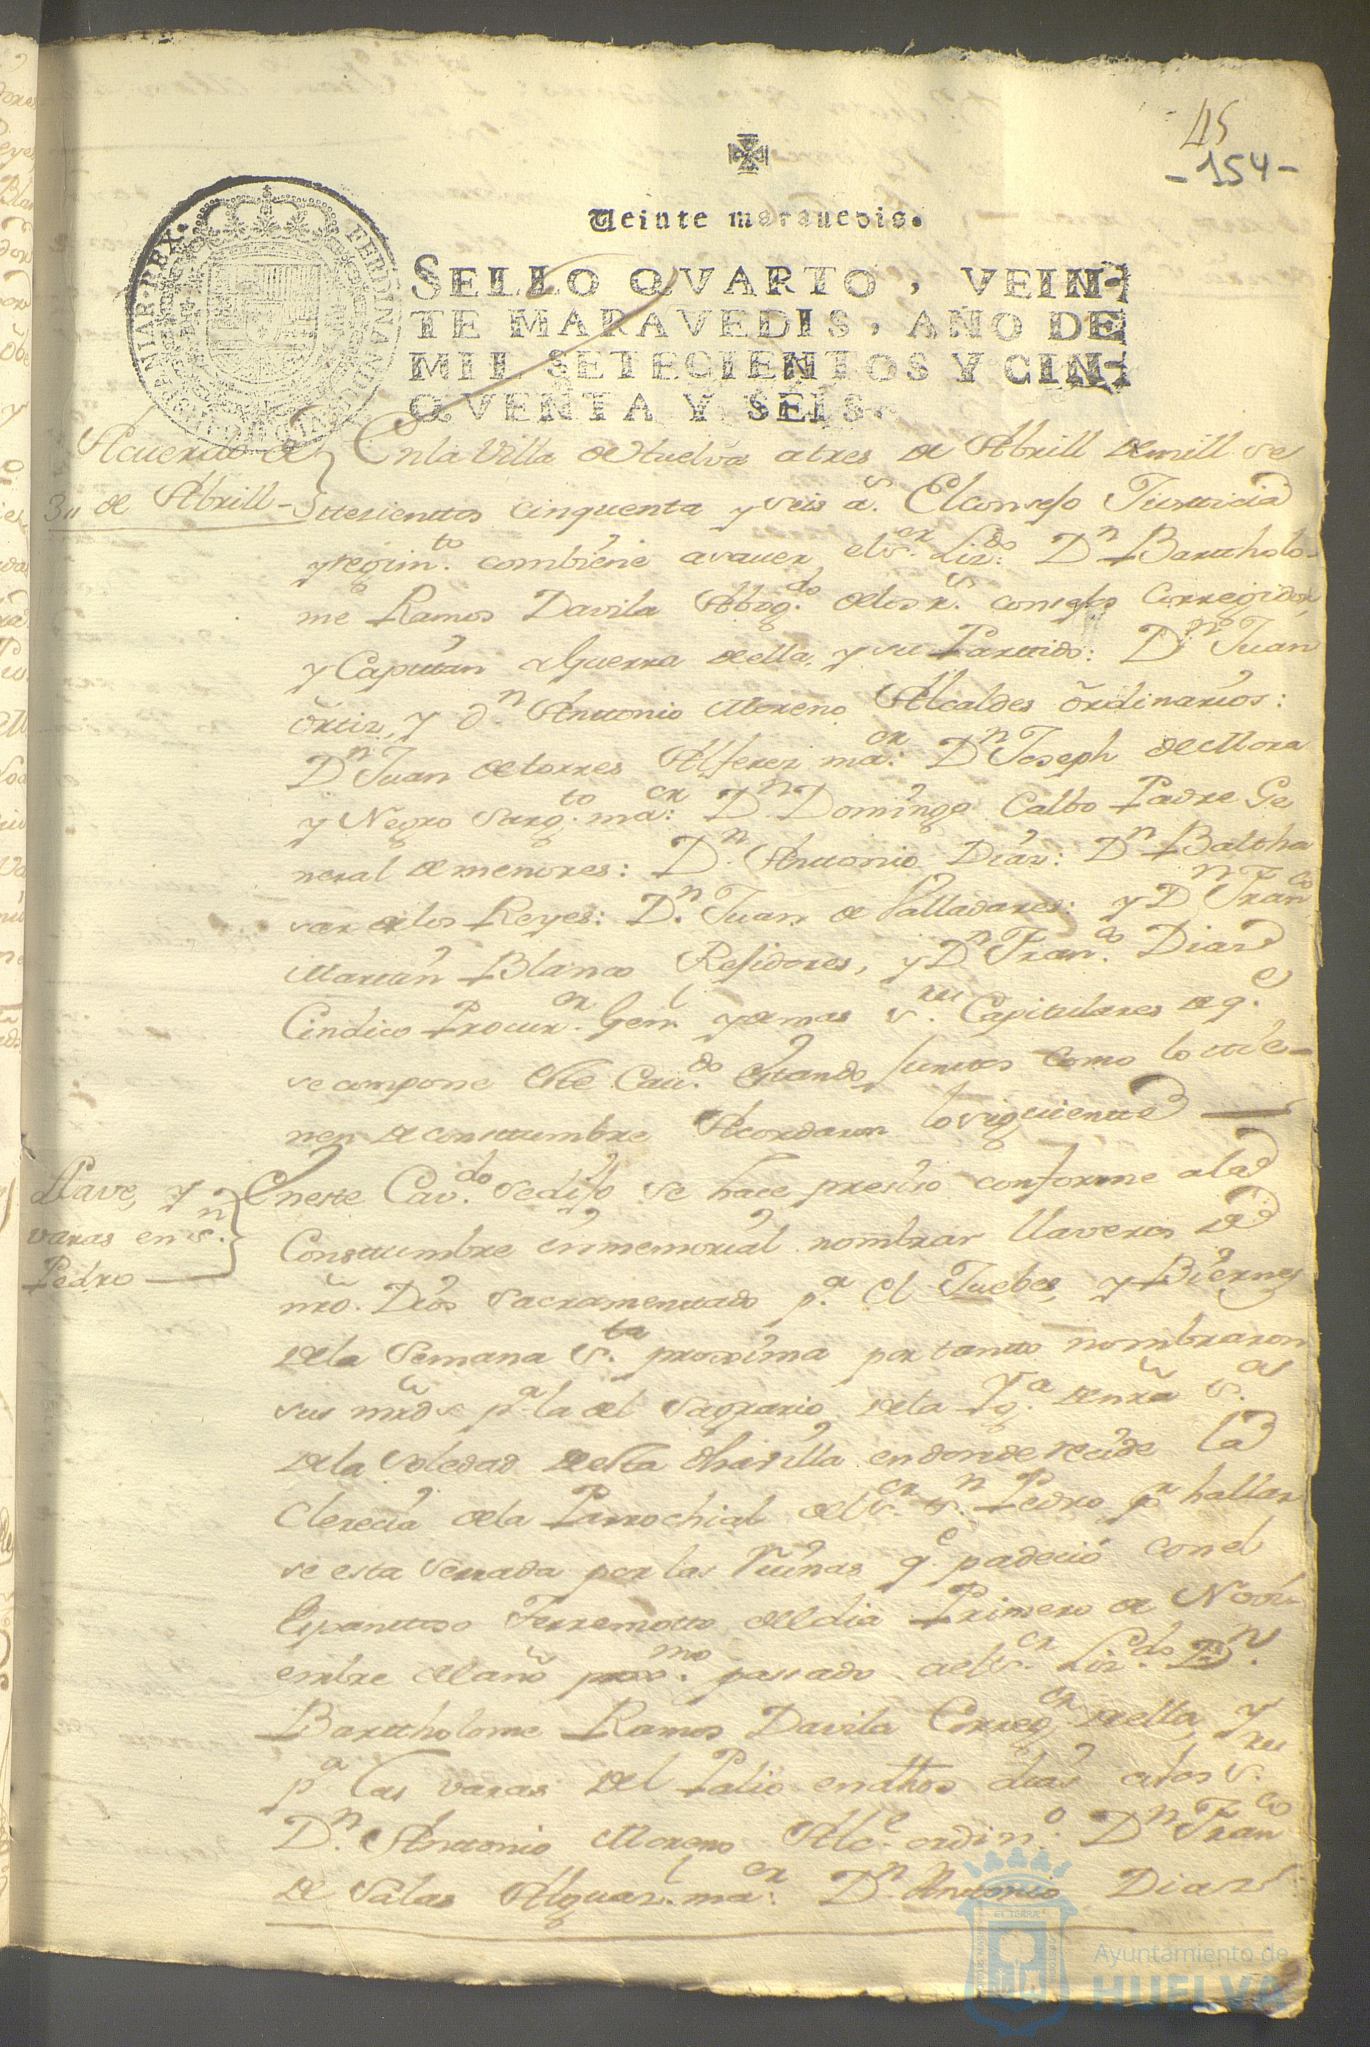 45
-154-
Veinte maravedis.
SELLO QVARTO, VEIN-
TE MARAVEDIS, AÑO DE
MIL SETECIENTOS Y CIN-
QVENTA Y SEIS.
FERDINANDVS HISPANIAR. REX.
Acuerdo de
3,, de Abrill
En la Villa de Huelva a tres de Abrill de mill se
ttezienttos cinquenta y seis as. El Consejo Justticia
y regimto. combiene a saver, el Sr. Lizdo. Dn Barttholo-
me Ramos Davila Abogdo. de los rs. consejos Corregidor
y Capittan a Guerra de ella y su Parttido: Dn Juan
Ortiz, y dn Anttonio Moreno Alcaldes ordinarios:
Dn Juan de torres Alferez maor: Dn Joseph de Mora
y Negro Sargto. maor: Dn Domingo Calbo Padre Ge
neral de menores: Dn. Anttonio Diaz: Dn Baltha
sar de los Reyes: Dn. Juan de Valladares: y Dn Franco
Marttin Blanco Rejidores, y Dn Franco. Diaz
Cindico Procuror. Genl. y demas sres. Capitulares de qe.
se compone este Cavdo. estando junttos como lo ttie-
nen de consttumbre Acordaron lo siguientte
Llave, y
varas en Sn.
Pedro
En este Cavdo. se dijo se hace presiso conforme a la
Consttumbre inmemorial nombrar llaveros de
nro. Dios Sacramenttado pa. el Juebes, y Biernes
de la Semana Sta. proxima por tantto nombraron
sus mrds pa la del Sagrario de la Iga. de nra Sra
de la Soledad de esta dha Villa en donde recide la
Clerecia de la Parrochial del Sr. Sn. Pedro pr hallar
se esta serrada por las Ruinas qe padeció con el
Espanttoso Terremotto del dia Primero de Novi-
embre del año proxmo. passado al Sr. Lizdo. Dn.
Barttholome Ramos Davila Corregor de ella, y
pa las varas del Palio en dhos dias a los Sres.
Dn. Anttonio Moreno Alce. ordino. Dn Franco
de Salas Alguazl. maor. Dn Anttonio Diaz
Ayuntamiento de
HUELVA